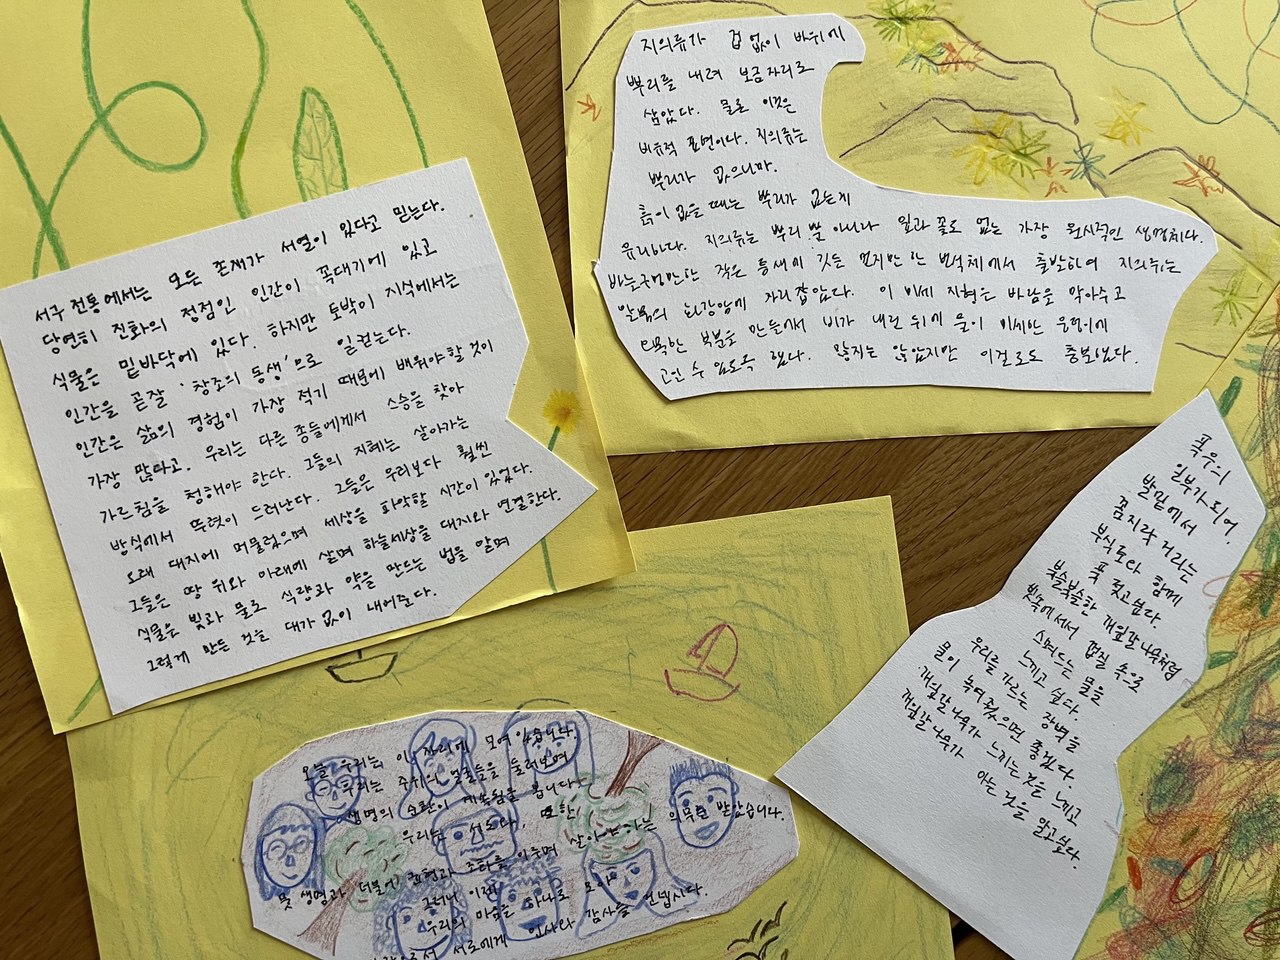 서구 전통에서는 모든 존재가 서열이 있다고 믿는다.
당연히 진화의 정점인 인간이 꼭대기에 있고
식물은 밑바닥에 있다. 하지만 토박이 지식에서는
인간을 곧잘 '창조의 동생'으로 일컫는다.
인간은 삶의 경험이 가장 적기 때문에 배워야할 것이
가장 많다고. 우리는 다른 종들에게서 스승을 찾아
가르침을 청해야 한다. 그들의 지혜는 살아가는
방식에서 뚜렷이 드러난다. 그들은 우리보다 훨씬
오래 대지에 머물렀으며 세상을 파악할 시간이 있었다.
그들은 땅 위와 아래에 살며 하늘세상을 대지와 연결한다.
식물은 빛과 물로 식량과 약을 만드는 법을 알며
그렇게 만든 것을 대가 없이 내어준다.
지의류가 겁 없이 바위에
뿌리를 내려 보금자리로
삼았다. 물론 이것은
비유적 표현이다. 지의류는
뿌리가 없으니까.
흙이 없을 때는 뿌리가 없는게
유리하다. 지의류는 뿌리 뿐 아니라 잎과 꽃도 없는 가장 원시적인 생명체다.
바늘구멍만한 작은 틈새에 깃든 먼지만한 번식체에서 출발하여 지의류는
알몸의 화강암에 자리잡았다. 이 미세 지형은 바람을 막아주고
오목한 부분을 만들어서 비가 내린 뒤에 물이 미세한 웅덩이에
고일 수 있도록 했다. 많지는 않았지만 이걸로도 충분했다.
폭우의
일부가 되어,
발밑에서
꼼지락 거리는
부식토와 함께
푹 젖고싶다.
북슬북슬한 개잎갈나무처럼
빗속에 서서 껍질 속으로
스며드는 물을
느끼고 싶다.
우리를 가르는 장벽을
물이 녹여줬으면 좋겠다.
개잎갈나무가 느끼는 것을 느끼고
개잎갈나무가 아는 것을 알고싶다.
오늘 우리는 이 자리에 모여있습니다.
우리는 주위의 얼굴들을 둘러보며
생명의 순환이 계속됨을 봅니다.
우리는 서로와, 또한
뭇 생명과 더불어 균형과 조화를 이루며 살아가라는 의무를 받았습니다.
그러니 이제
우리의 마음을 하나로 모아
서로에게 인사와 감사를 건넵시다.